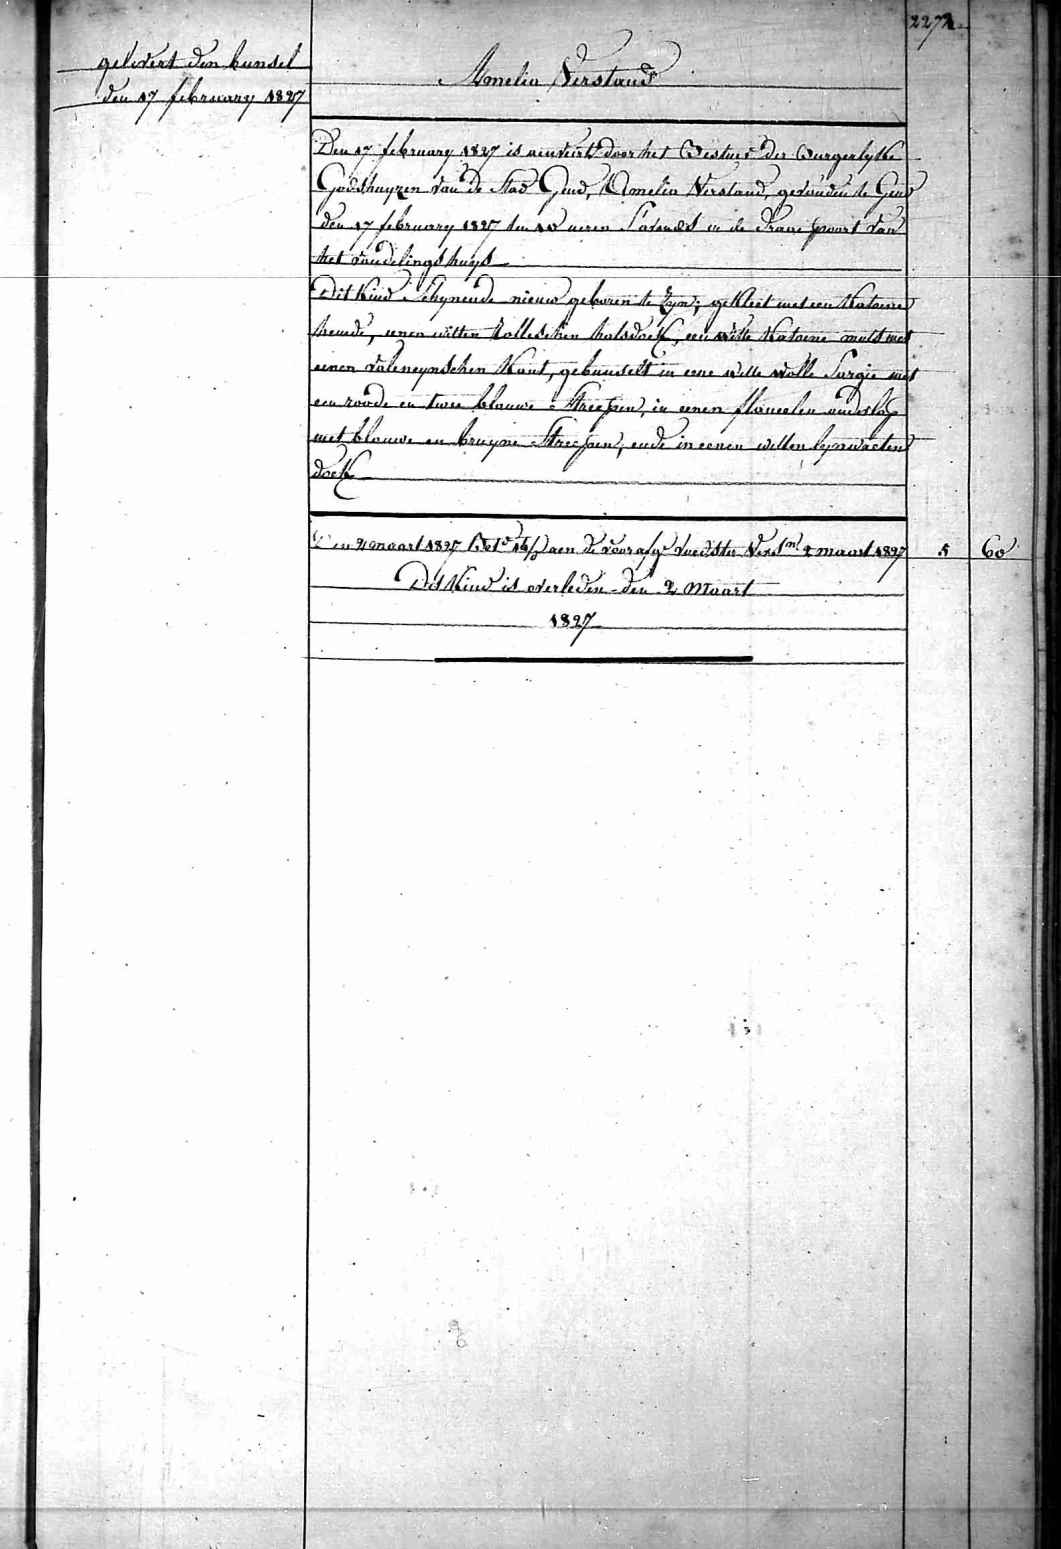 2272
gelevert den bunsel
den 17 february 1827
Amelia Verstand
Den 17 february 1827 is aenveirt door het Bestuer der Burgerlyke
Godshuyzen van de Stad Gend, Amelia Verstand, gevonden te Gend
den 17 february 1827 ten 10 ueren s'avonds in de Draeipoort van
het vondelingshuys
Dit Kind schynende nieuw geboren te zyn; gekleet met een Katoene
hemde, eenen witten halsdoek, een witte Katoene muts met
eenen valencynschen Kant, gebunselt in eene witte wolle Sargie met
een roode en twee blauwe Streepen, in eenen flanelen
met blauwe en bruyne Streepen, ende in eenen witten lynwaeten
doek
Den maart 1827 aen de voedster 2 maart 1827 5 60
Dit Kind is overleden den 2 Maart
1827